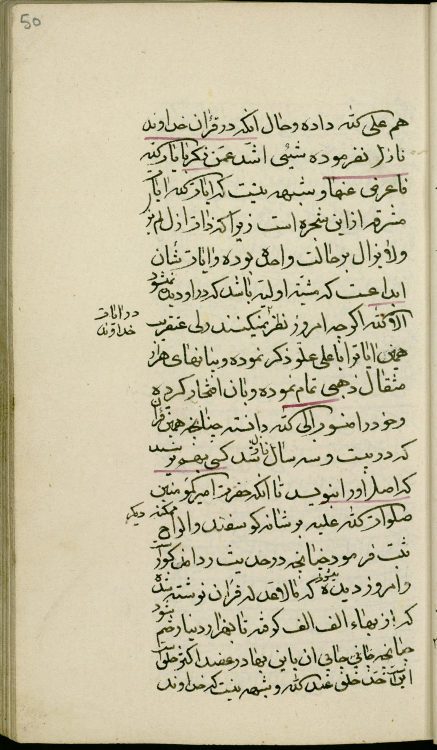 50
هم علی الله داده و حال آنکه در قرآن خداوند
نازل نفرموده شیئی اشد عمن ذکر بایات الله
فاعرض عنها و شبهه نیست که ایات الله ایات
مشرقه از این شجره است زیرا که ذات ازل لم یزل
ولا یزال بر حالت واحده بوده و ایات شأن
ابداعست که مشیت اولیه باشد که در او دیده نمیشود
الا الله اگرچه امروز نظر نمیکنند ولی عنقریب
در ایات
خداوند
همین ایات را باعلی علو ذکر نموده و بهاهای هزار
مثقال ذهبی تمام نموده و بان افتخار کرده
و خود را منسوب الی الله دانسته چنانچه همین قرآن
که در بیست و سه سال نازل شد کسی بهم نرسید
که اصل او را بنویسد تا آنکه حضرت امیر المؤمنین
صلوات الله علیه بر شانه گوسفند و الواح
ممکنه دیگر
ثبت فرمود چنانچه در حدیث رداء مذکور است
و امروز دیده میشود که مالا عد له قرآن نوشته شده
که از بهاء الف الف گرفته تا بهزار دینار ختم شود
چنانچه خانی جانی ان باین بها در عضد اکثر خلق است
این است حد خلق عند الله و شبهه نیست که خداوند